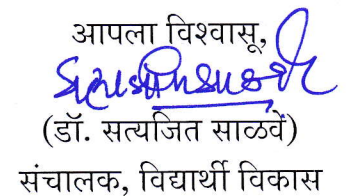 आपला विश्वासू,
(डॉ. सत्यजित साळवे)
संचालक, विद्यार्थी विकास